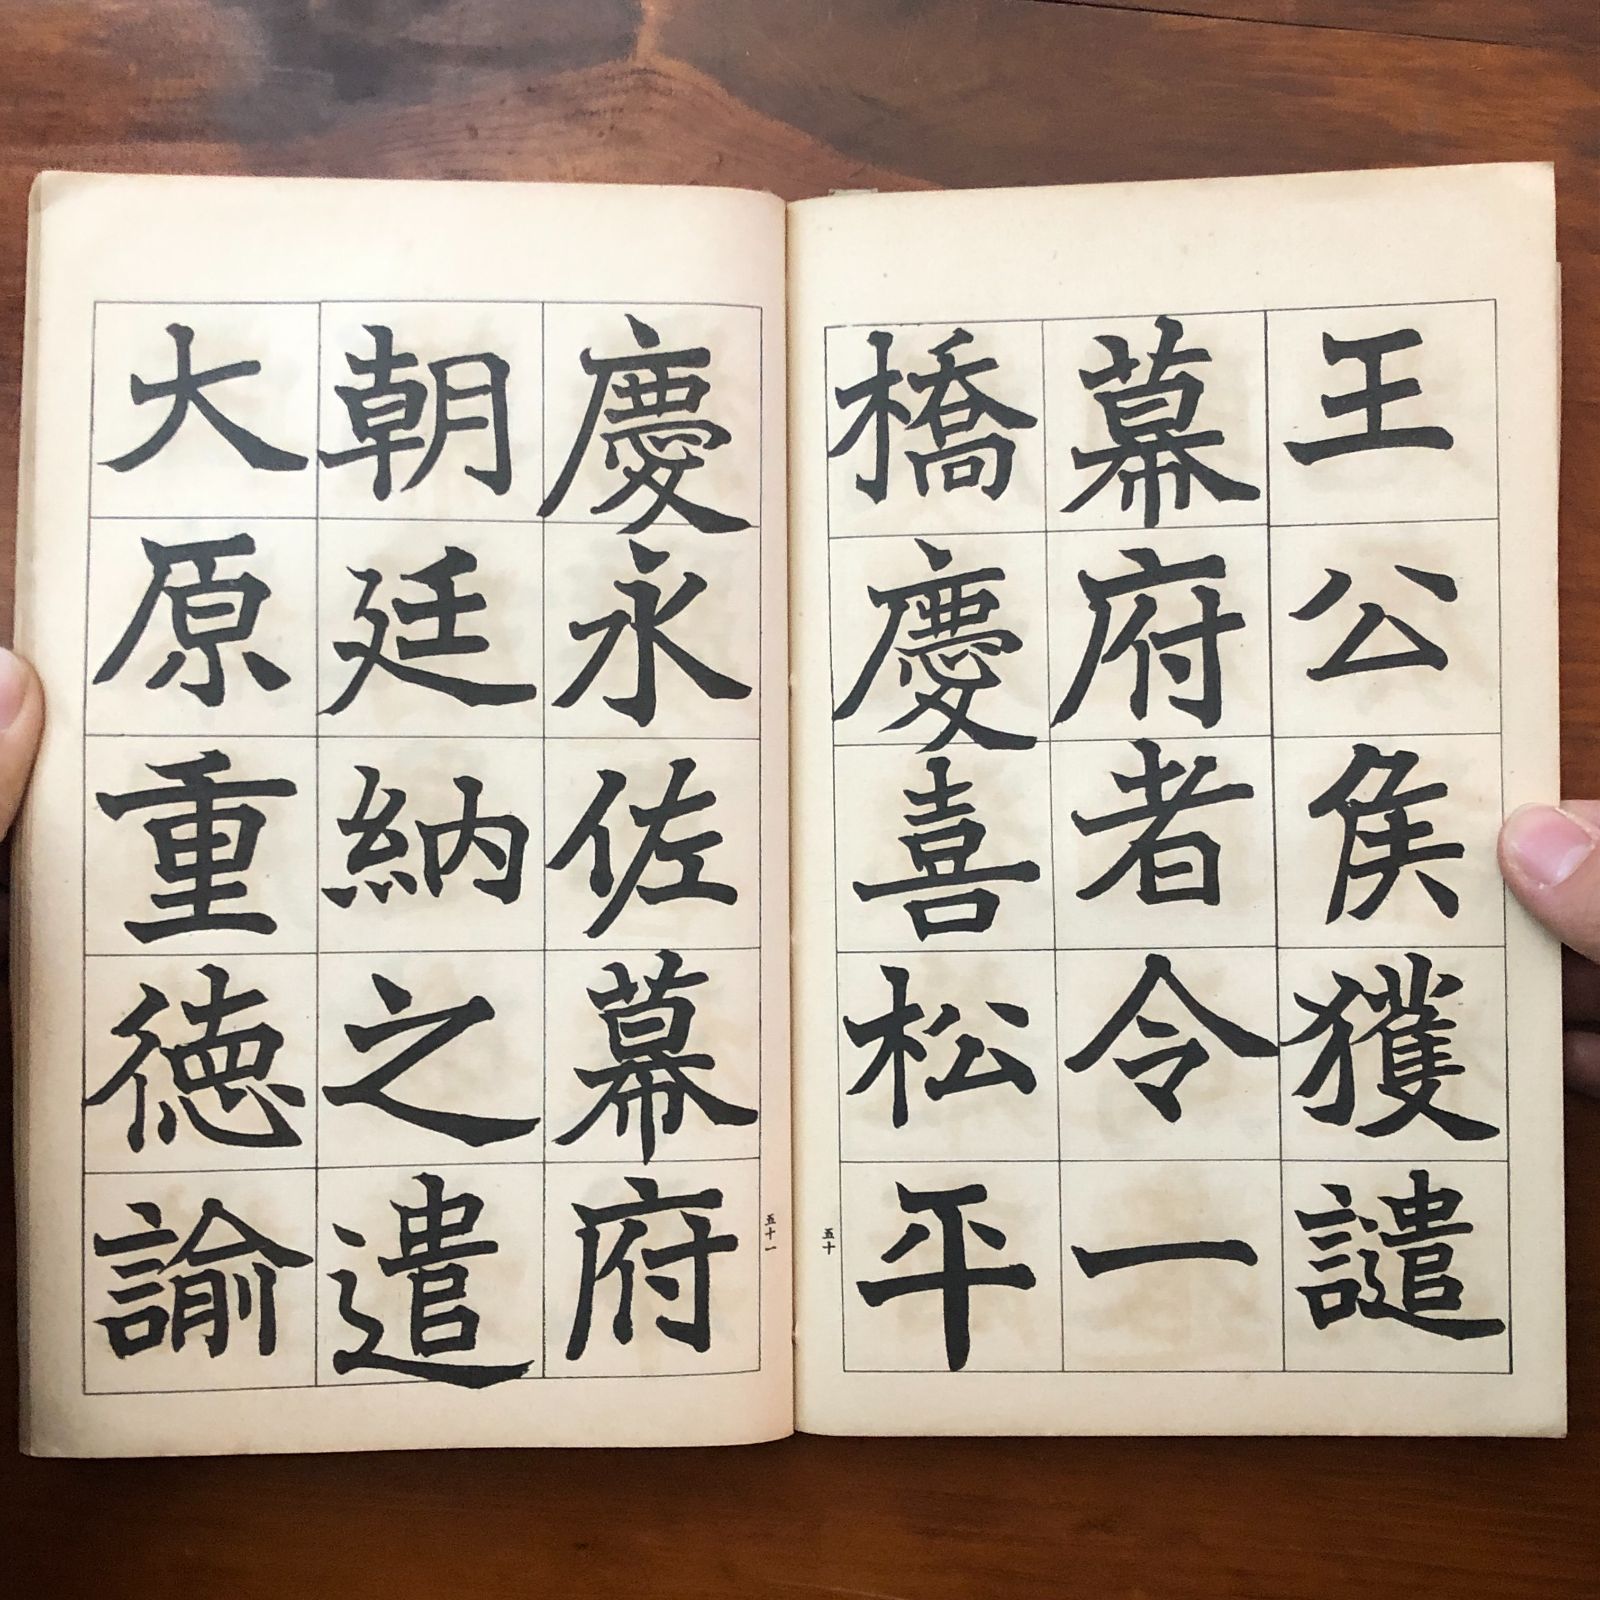 王公侯獲譴
幕府者令一
橋慶喜松平
五十
慶永佐幕府
朝廷納之遣
大原重徳諭
五十一